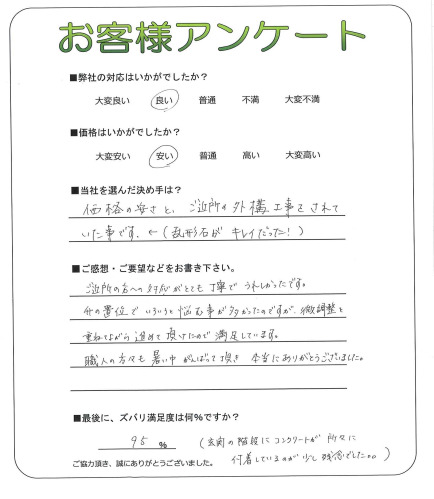 お客様アンケート
■弊社の対応はいかがでしたか?
大変良い 良い 普通 不満 大変不満
■価格はいかがでしたか?
大変安い 安い 普通 高い 大変高い
■当社を選んだ決め手は?
価格の安さと、ご近所の外構工事をされて
いた事です。←(乱形石がキレイだった!)
■ご感想・ご要望などをお書き下さい。
ご近所の方への対応がとても丁寧でうれしかったです。
舛の置位でいろいろと悩む事が多かったのですが、微調整を
重ねてながら進めて頂けたので満足しています。
職人の方々も暑い中がんばって頂き 本当にありがとうございました。
■最後に、ズバリ満足度は何%ですか?
95 %
(玄関の階段にコンクリートが所々に
付着しているのが少し残念でした。。)
ご協力頂き、誠にありがとうございました。